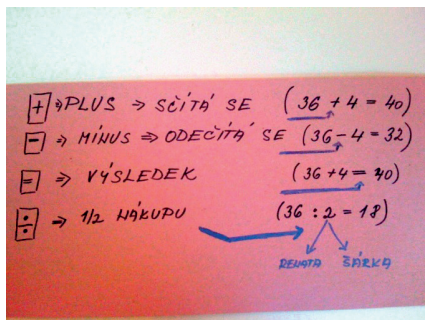 + ⇒ PLUS ⇒ SČÍTÁ SE (36 + 4 = 40)
- ⇒ MÍNUS ⇒ ODEČÍTÁ SE (36 - 4 = 32)
= ⇒ VÝSLEDEK (36 + 4 = 40)
÷ ⇒ 1/2 NÁKUPU (36 : 2 = 18)
RENATA ŠÁRKA